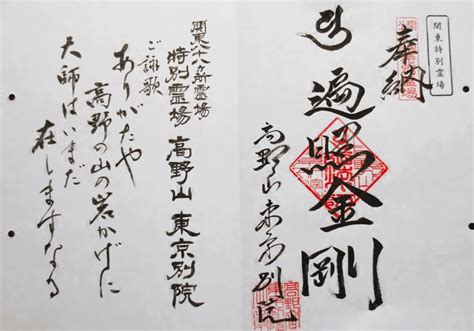 関東特別霊場
奉納
遍照金剛
高野山東京別院
関東八十八ヶ所霊場
特別霊場 高野山東京別院
ご詠歌
ありがたや
高野の山の岩かげに
大師はいまだ
在しますなる